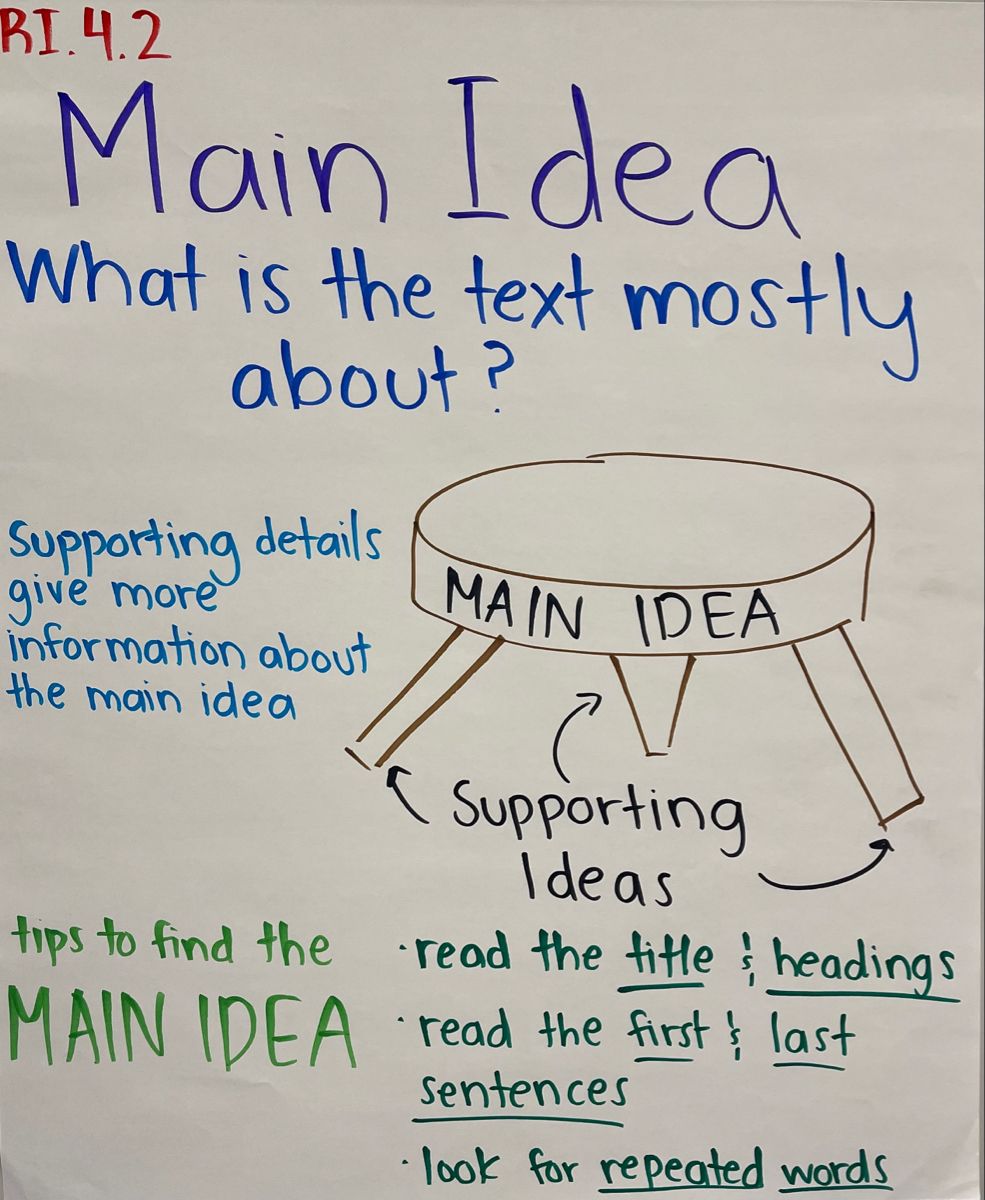 RI.4.2
Main Idea
What is the text mostly
about?
Supporting details
give more
information about
the main idea
MAIN IDEA
Supporting
Ideas
tips to find the
MAIN IDEA
·read the title & headings
·read the first & last
sentences
·look for repeated words